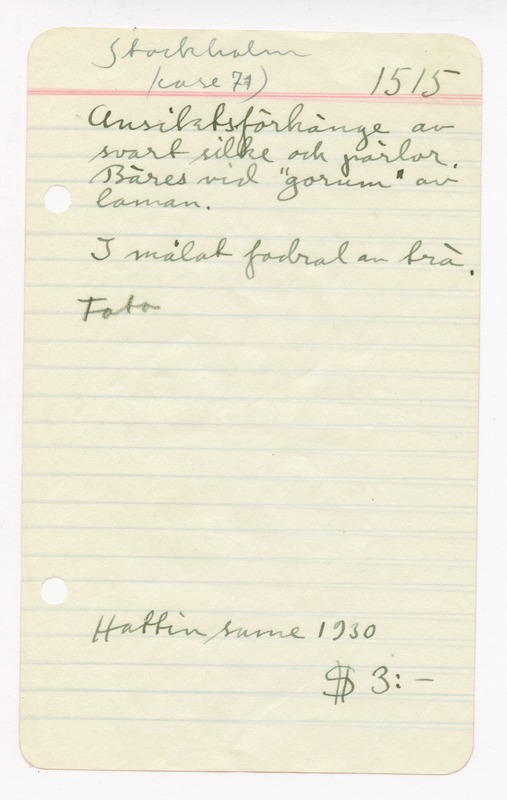 Stockholm
(case 71) 1515
Ansiktsförhänge av
svart silke och pärlor.
Bäres vid "gorum" av
laman.
I målat fodral av trä.
Foto
Hattin sume 1930
$ 3:-